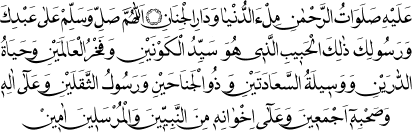 عَلَيْهِ صَلَوَاتُ الرَّحْمٰنِ مِلْءَ الدُّنْيَا وَدَارِ الْجِنَانِ ۞ اَللّٰهُمَّ صَلِّ وَسَلِّمْ عَلٰى عَبْدِكَ
وَرَسُولِكَ ذٰلِكَ الْحَبِيبِ الَّذِي هُوَ سَيِّدُ الْكَوْنَيْنِ وَفَخْرُ الْعَالَمَيْنِ وَحَيَاةُ
الدَّارَيْنِ وَوَسِيلَةُ السَّعَادَتَيْنِ وَذُو الْجَنَاحَيْنِ وَرَسُولُ الثَّقَلَيْنِ وَعَلٰى اٰلِهِ
وَصَحْبِهِ اَجْمَعِينَ وَعَلٰى اِخْوَانِهِ مِنَ النَّبِيِّينَ وَالْمُرْسَلِينَ اٰمِينَ